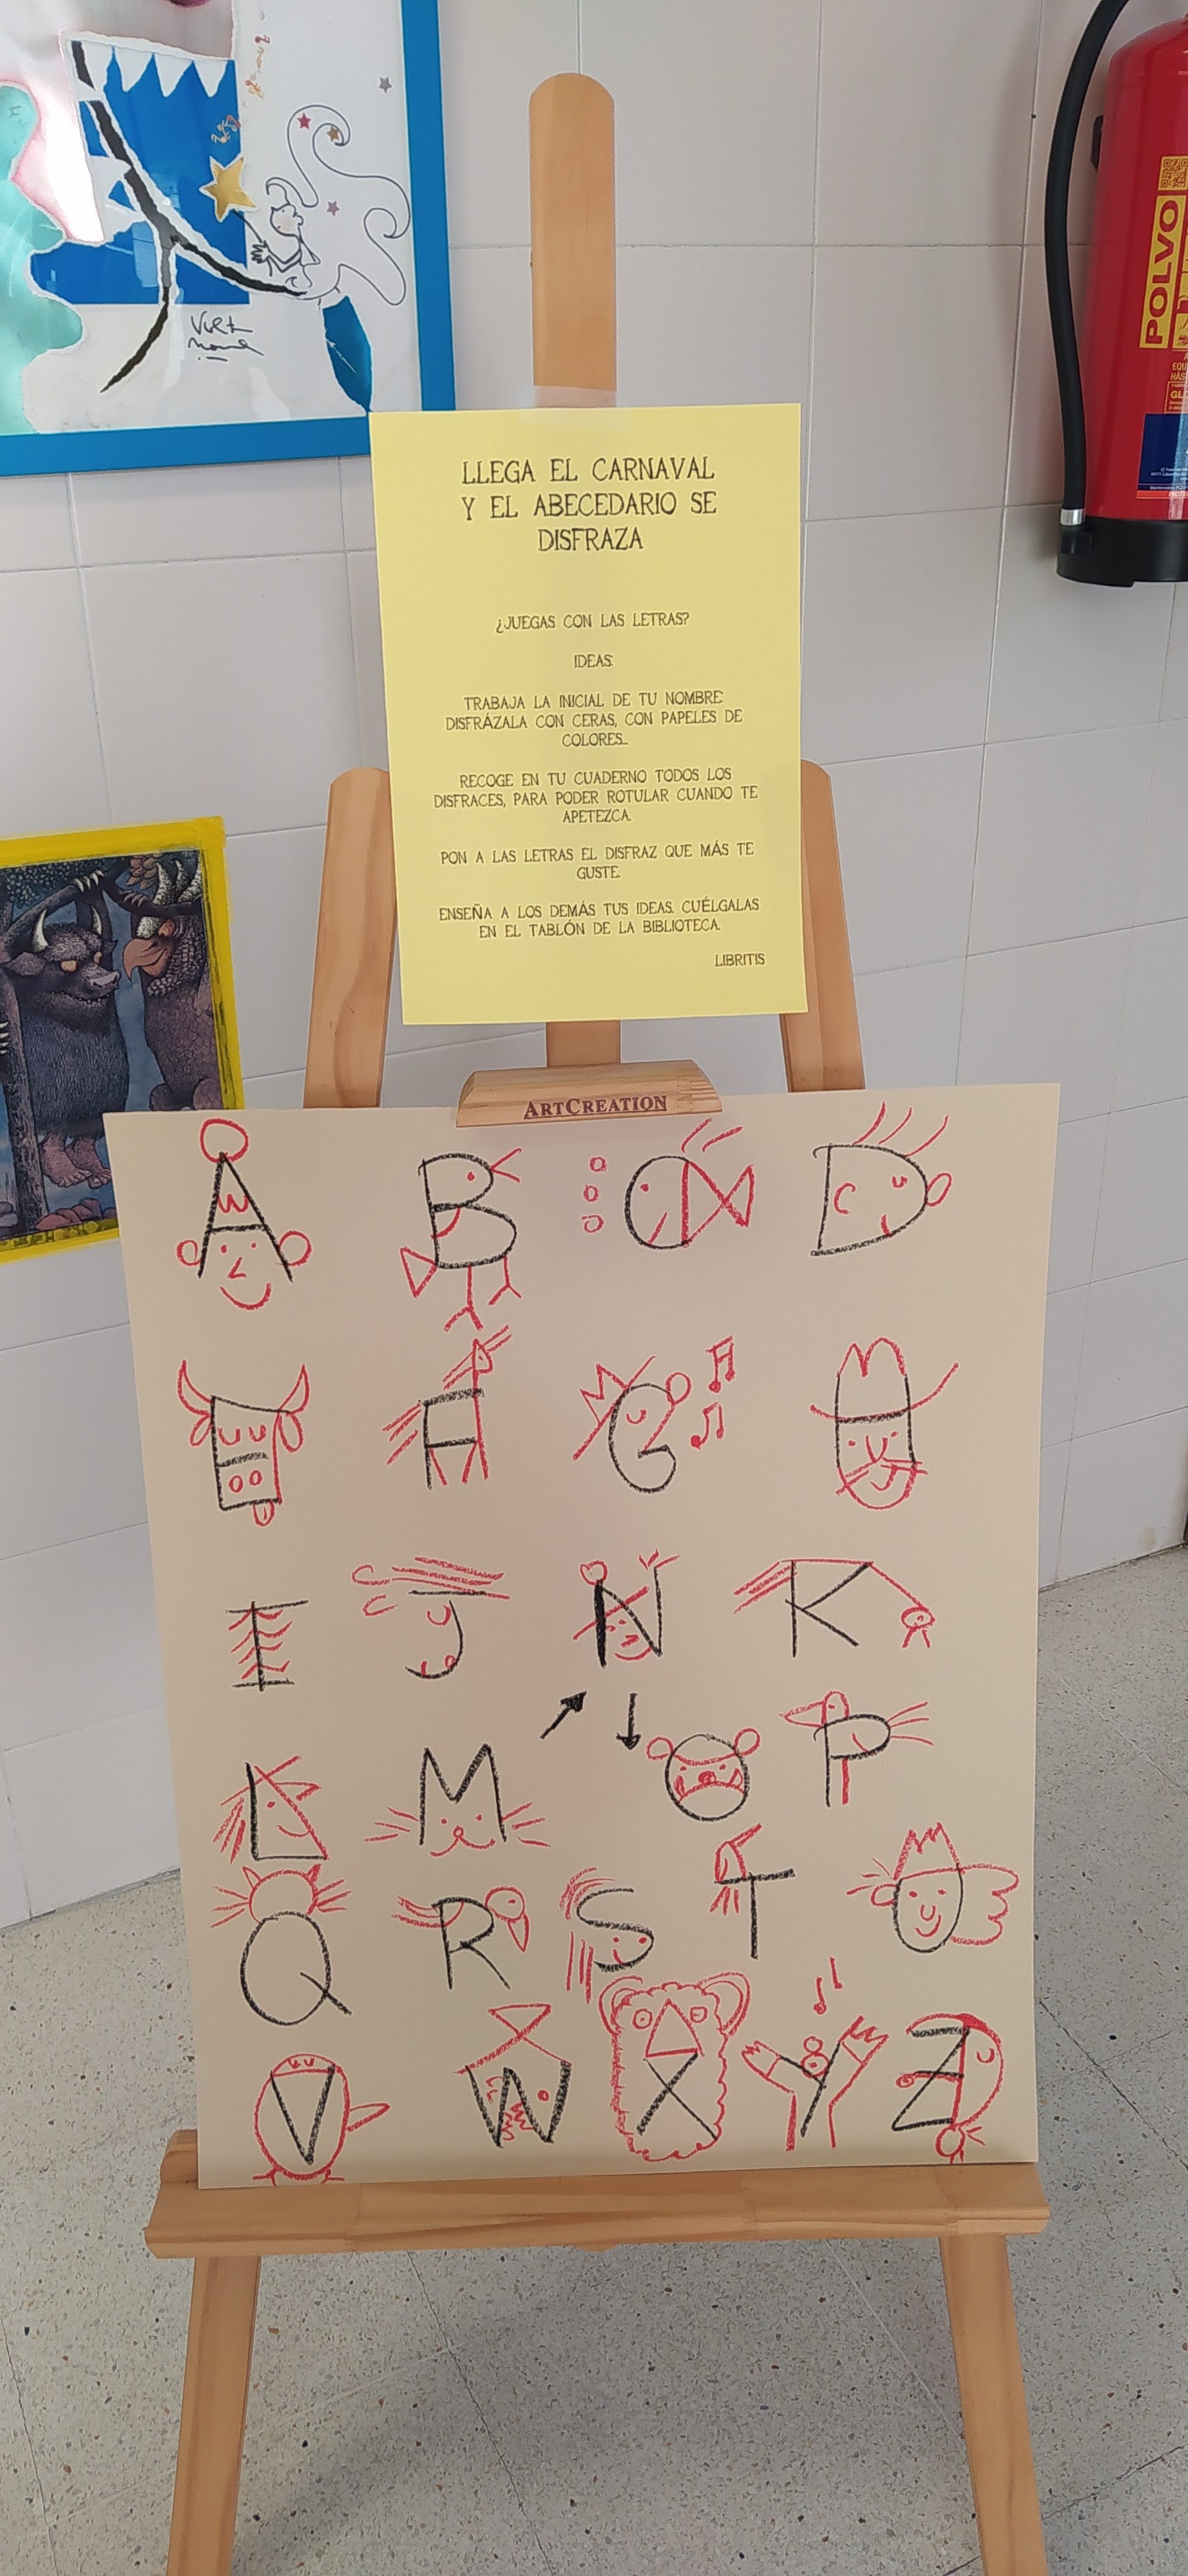 POLVO
LLEGA EL CARNAVAL
Y EL ABECEDARIO SE
DISFRAZA
¿JUEGAS CON LAS LETRAS?
IDEAS:
TRABAJA LA INICIAL DE TU NOMBRE:
DISFRÁZALA CON CERAS, CON PAPELES DE
COLORES...
RECOGE EN TU CUADERNO TODOS LOS
DISFRACES, PARA PODER ROTULAR CUANDO TE
APETEZCA.
PON A LAS LETRAS EL DISFRAZ QUE MÁS TE
GUSTE.
ENSEÑA A LOS DEMÁS TUS IDEAS. CUÉLGALAS
EN EL TABLÓN DE LA BIBLIOTECA.
LIBRITIS
ARTCREATION
A B C D
E F G H
I J N K
L M O P
Q R S T U
V W X Y Z